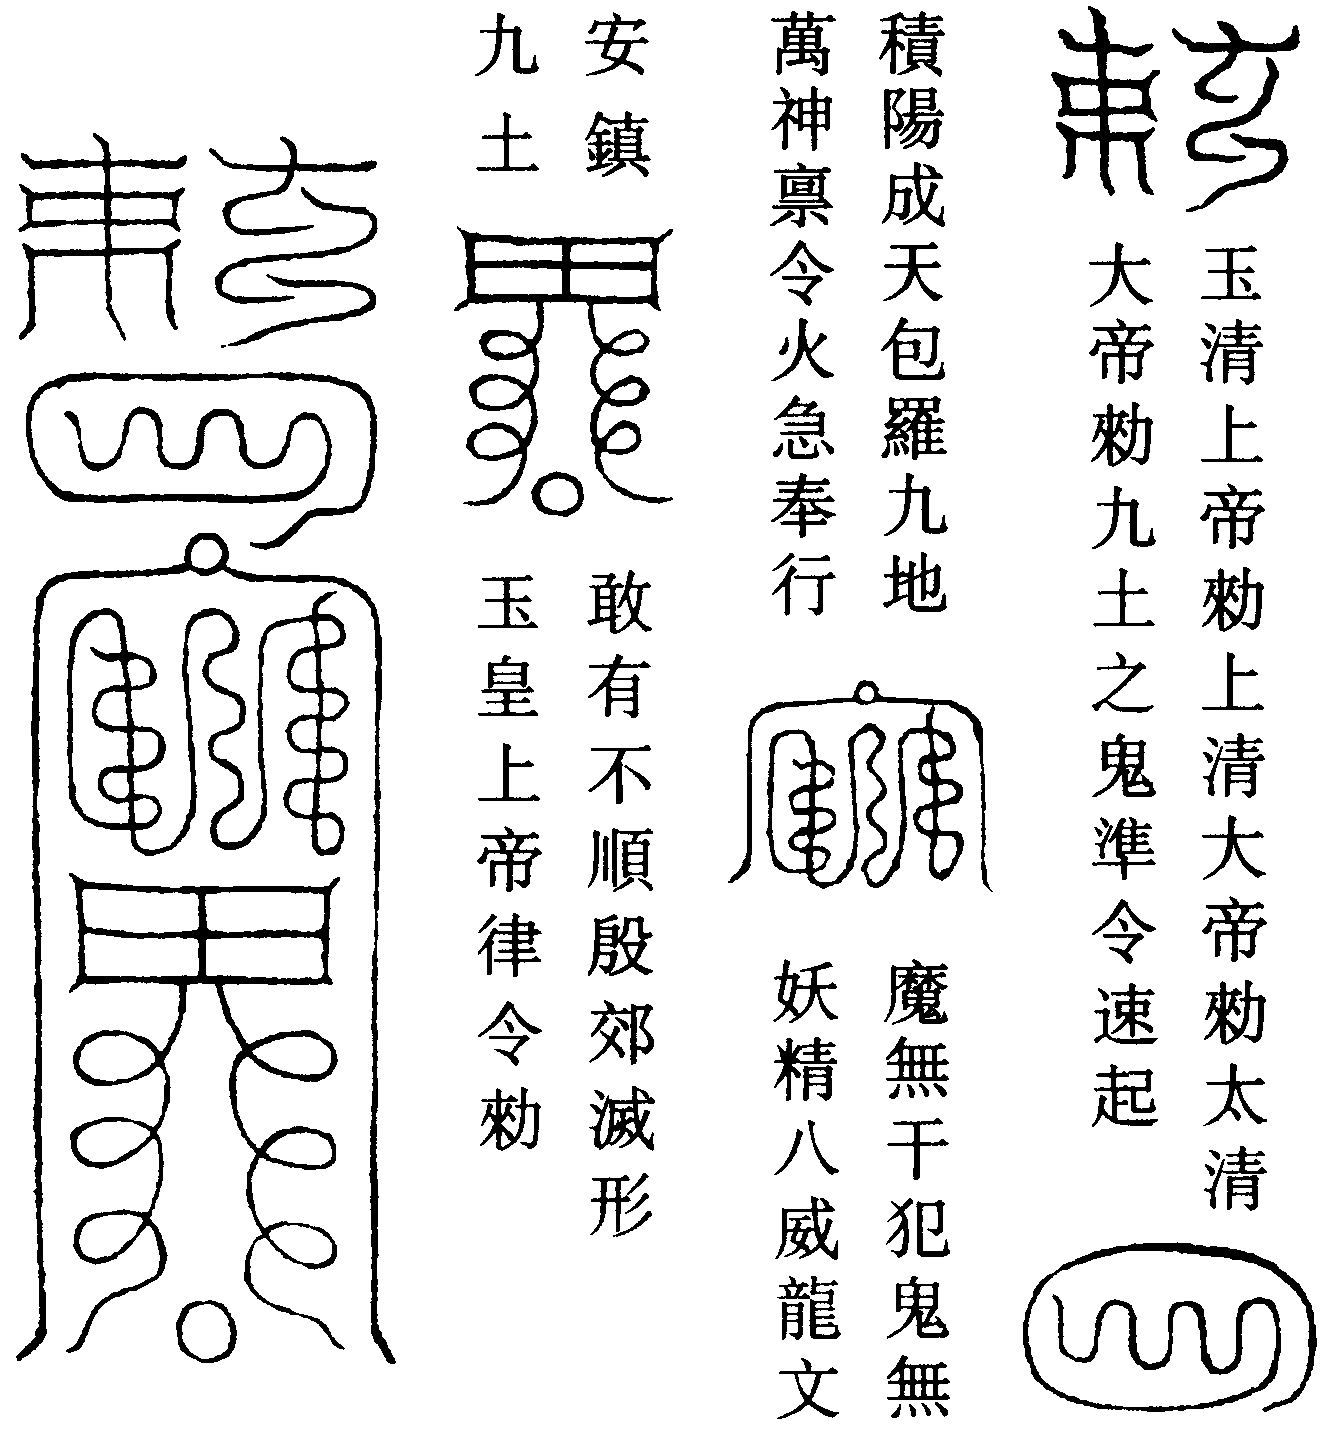 玉清上帝勑上清大帝勑太清
大帝勑九土之鬼準令速起
積陽成天包羅九地
萬神禀令火急奉行
魔無干犯鬼無
妖精八威龍文
安鎮
九土
敢有不順殷郊滅形
玉皇上帝律令勑